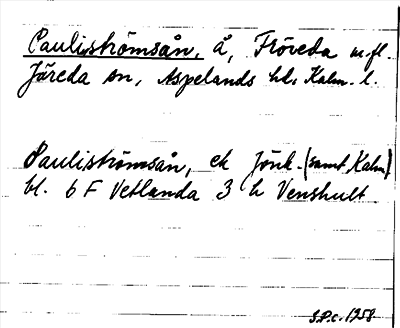 Pauliströmsån, å, Fröreda m.fl.
Järeda sn, Aspelands hd, Kalm. l.
Pauliströmsån, ek Jönk. (samt Kalm)
bl. 6 F Vetlanda 3 h Venshult
S.P.c. 1958